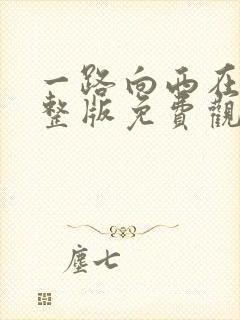 一路向西在
整版免費觀
塵七